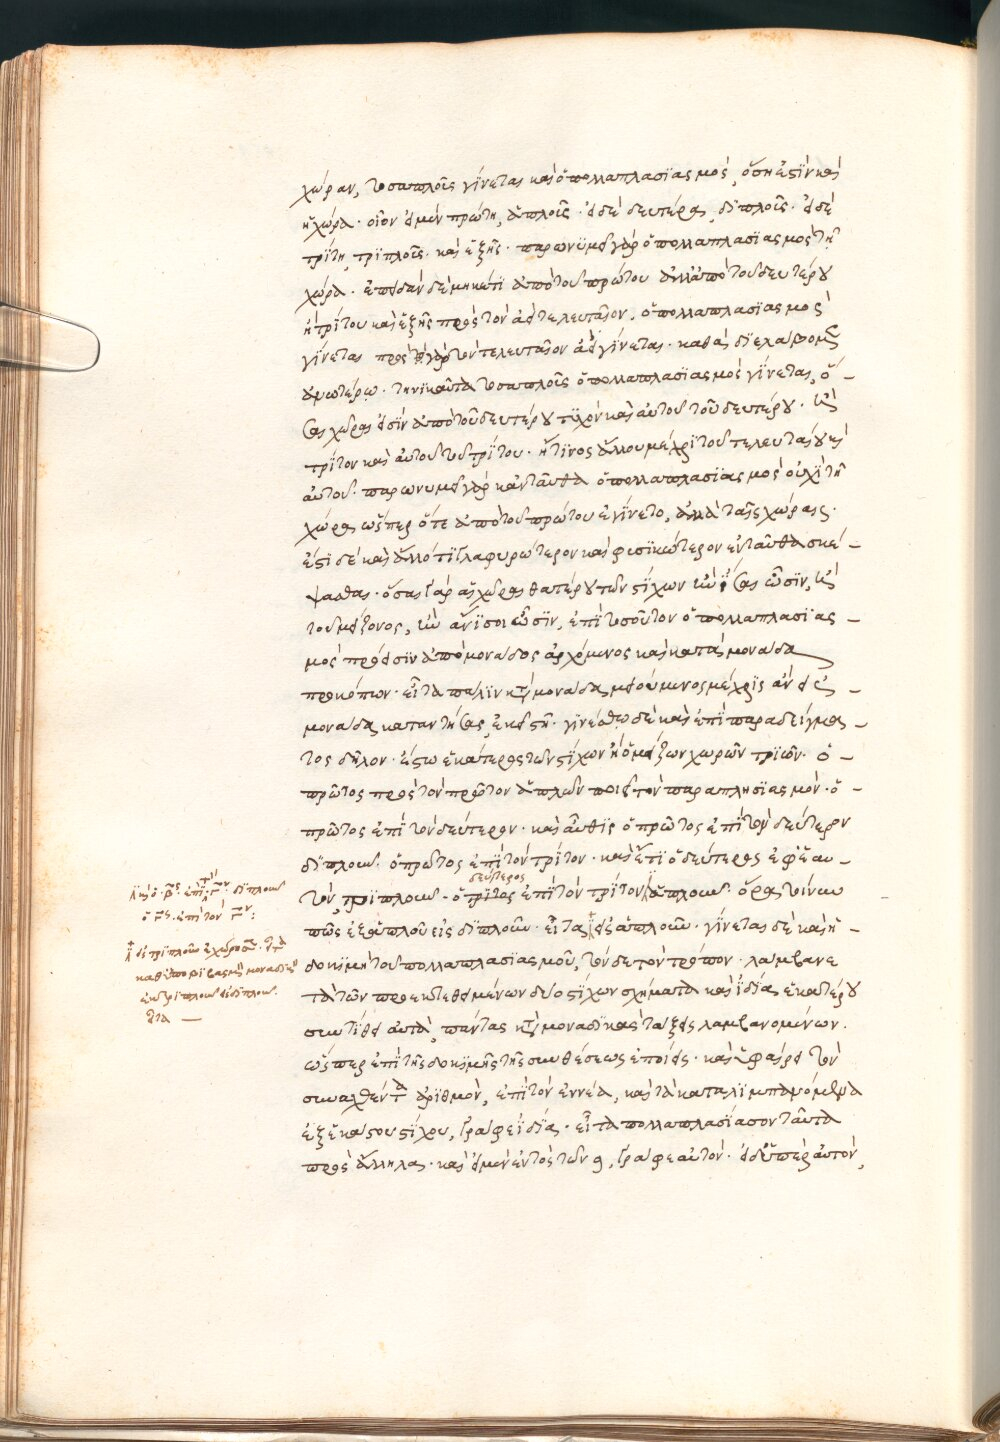 χώραν, τοσαπλοῦς γίνεται καὶ ὁ πολλαπλασιασμὸς, ὅση ἐστὶν καὶ
ἡ χώρα · οἷον εἰ μὲν πρώτη, ἁπλοῦς · εἰ δὲ δευτέρα, διπλοῦς · εἰ δὲ
τρίτη, τριπλοῦς · καὶ ἑξῆς · παρωνυμεῖ γὰρ ὁ πολλαπλασιασμὸς τῇ
χώρᾳ · ἐπειδὰν δὲ μηκέτι ἀπὸ τοῦ πρώτου ἀλλ' ἀπὸ τοῦ δευτέρου
ἢ τρίτου καὶ ἑξῆς πρὸς τὸν ἀεὶ τελευταῖον, ὁ πολλαπλασιασμὸς
γίνεται πρὸς γὰρ τὸν τελευταῖον ἀεὶ γίνεται · καθὰ διελάβομεν
ἀνωτέρω · τηνικαῦτα τοσαπλοῦς ὁ πολλαπλασιασμὸς γίνεται, ὅ-
σαι χῶραι εἰσὶν ἀπὸ τοῦ δευτέρου τυχὸν καὶ αὐτοῦ τοῦ δευτέρου · καὶ
τρίτου καὶ αὐτοῦ τοῦ τρίτου · ἤ τινος ἄλλου μέχρι τοῦ τελευταίου καὶ
αὐτοῦ · παρωνυμεῖ γὰρ κἀνταῦθα ὁ πολλαπλασιασμὸς οὐχὶ τῇ
χώρᾳ ὥσπερ ὅτε ἀπὸ τοῦ πρώτου ἐγίνετο, ἀλλὰ ταῖς χώραις ·
ἔστι δὲ καὶ ἄλλό τι γλαφυρώτερον καὶ φυσικώτερον ἐνταῦθα σκέ-
ψασθαι · ὅσαι γὰρ αἱ χῶραι θατέρου τῶν στίχων κἂν ἴσαι ὦσιν, καὶ
τοῦ μείζονος, κἂν ἄνισοι ὦσιν, ἐπὶ τοσοῦτον ὁ πολλαπλασιασ-
μὸς πρόεισιν ἀπὸ μονάδος ἀρχόμενος καὶ κατὰ μονάδα
προκόπτων · εἶτα πάλιν κατὰ μονάδα μειούμενος μέχρις ἂν εἰς
μονάδα καταντήσας, ἐκεῖ στῇ · γινέσθω δὲ καὶ ἐπὶ παραδείγμα-
τος δῆλον · ἔστω ἑκάτερος τῶν στίχων ἢ ὁ μείζων χωρῶν τριῶν · ὁ-
πρῶτος πρὸς τὸν πρῶτον ἁπλοῦν ποιεῖ τὸν παραπλησιασμόν · ὁ-
πρῶτος ἐπὶ τὸν δεύτερον · καὶ αὖθις ὁ πρῶτος ἐπὶ τὸν δεύτερον
διπλοῦν · ὁ πρῶτος ἐπὶ τὸν τρίτον · καὶ ἔτι ὁ δεύτερος ἐφ' ἑαυ-
δεύτερος
τὸν, τριπλοῦν · ὁ τρίτος ἐπὶ τὸν τρίτον ἁπλοῦν · ὁρᾷς τοίνυν
πῶς ἐξ ἁπλοῦ εἰς διπλοῦν · εἶτα εἰς ἁπλοῦν · γίνεται δὲ καὶ ἡ-
δοκιμὴ τοῦ πολλαπλασιασμοῦ, τόνδε τὸν τρόπον · λάμβανε
τὰ τῶν προεκτεθειμένων δύο στίχων σχήματα καὶ ἰδίᾳ ἑκατέρου
συντίθει αὐτὰ, πάντας κατὰ μοναδικὰς τάξεις λαμβανομένων ·
ὥσπερ ἐπὶ τῆς δοκιμῆς τῆς συνθέσεως ἐποίεις · καὶ ὑφαίρει τὸν
συναχθέντα ἀριθμὸν, ἐπὶ τὸν ἐννέα, καὶ τὰ καταλιμπανόμενα
ἐξ ἑκάστου στίχου, γράφε ἰδίᾳ · εἶτα πολλαπλασίασον ταῦτα
πρὸς ἄλληλα · καὶ εἰ μὲν ἐντὸς τῶν θ, γράφε αὐτόν · εἰ δ' ὑπὲρ αὐτόν,
καὶ ὁ β͞ος ἐπὶ τὸν γ͞ον διπλοῦν
ὁ γ͞ος ἐπὶ τὸν γ͞ον:
εἰς τριπλοῦν ἐχώρησεν · εἶτα
καθ' ὑποβίβασιν μοναδικὴν
ἐκ τριπλοῦ εἰς διπλοῦν ·
εἶτα —